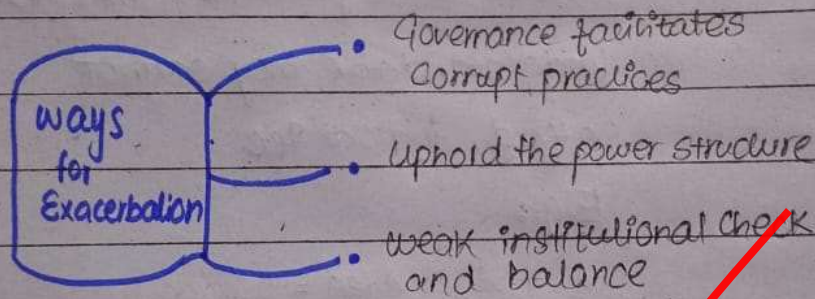 ways
for
Exacerbation
• Governance facilitates
Corrupt practices
• Uphold the power structure
• weak institutional check
and balance